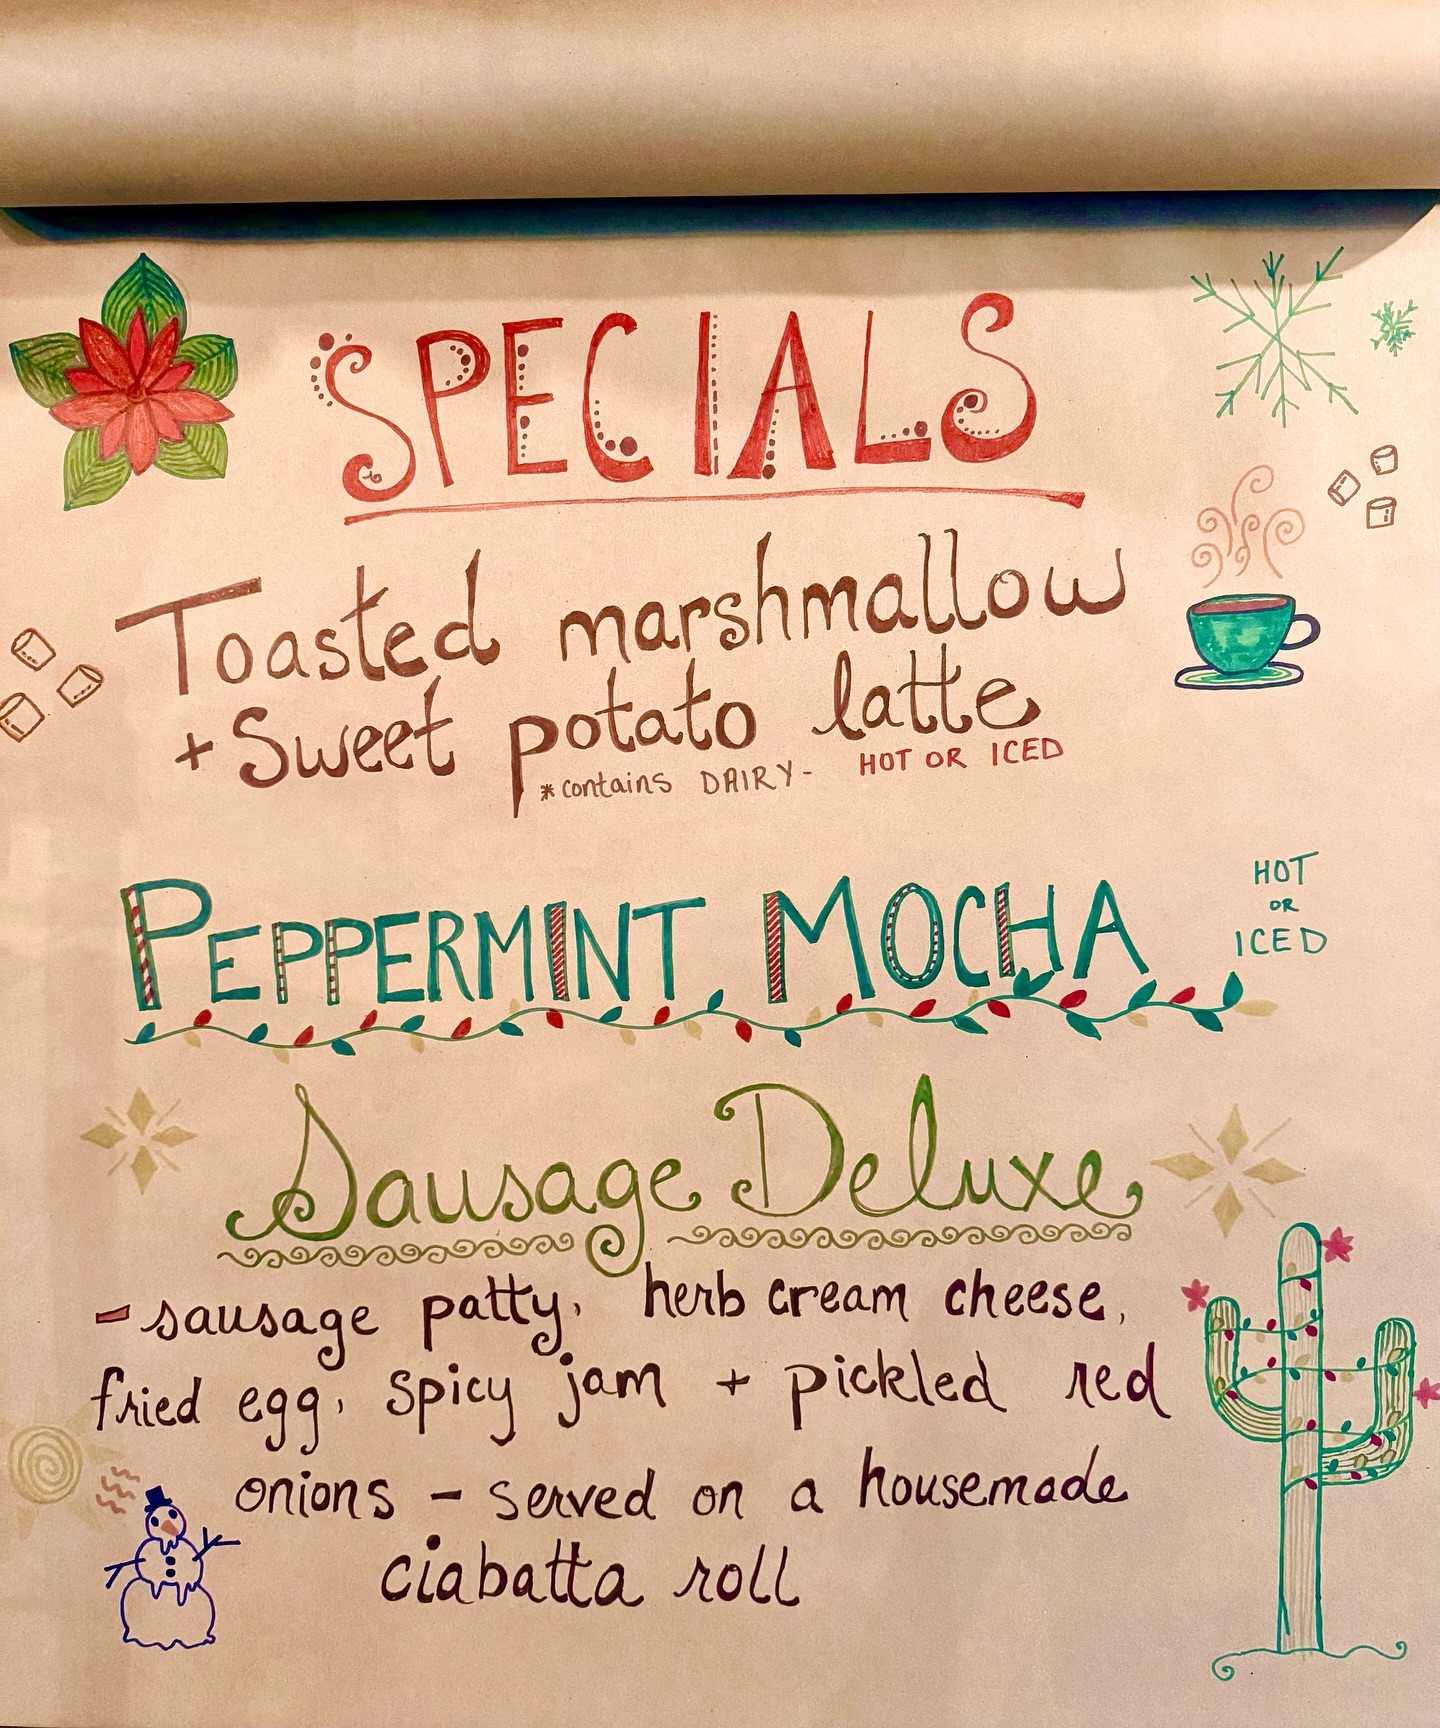 SPECIALS
Toasted marshmallow
+ Sweet potato latte
*contains DAIRY- HOT OR ICED
PEPPERMINT MOCHA HOT OR ICED
Sausage Deluxe
- sausage patty, herb cream cheese,
fried egg, spicy jam + pickled red
onions - served on a housemade
ciabatta roll